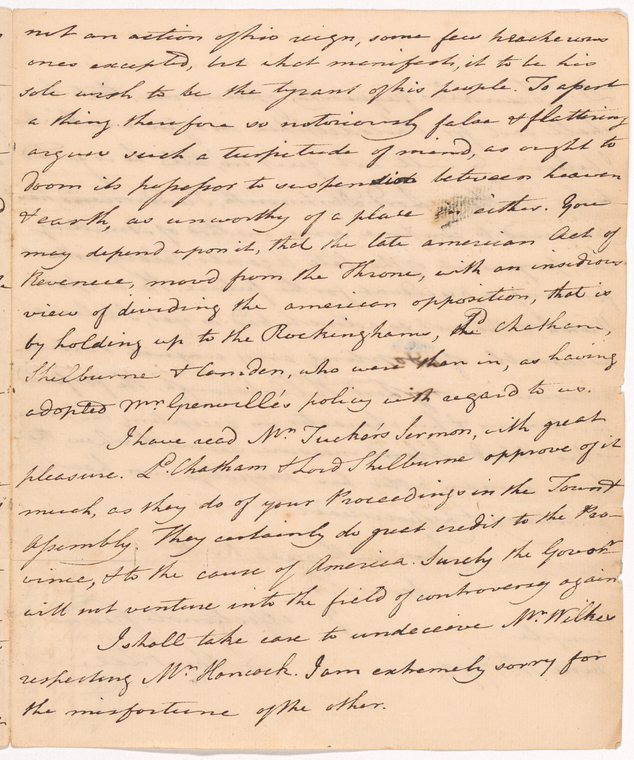 not an action of his reign, some few treacherous
ones excepted, but what manifests, it to be his
sole wish to be the tyrant of his people. To assert
a thing therefore so notoriously false & flattering
argues such a turpitude of mind, as ought to
doom its possessor to suspension between heaven
& earth, as unworthy of a place in either. You
may depend upon it, that the late american Act of
Revenue, mov'd from the Throne, with an insidious
view of dividing the american opposition, that is
by holding up to the Rockinghams, Ld. Chatham,
Shelburne & Camden, who were than in, as having
adopted Mr. Grenville's policy with regard to us.
I have read Mr. Tucker's Sermon, with great
pleasure. Ld. Chatham & Lord Shelburne approve of it
much, as they do of your Proceedings in the Town &
Assembly. They certainly do great credit to the Pro-
vince, & to the cause of America. Surely the Govenr.
will not venture into the field of controversy again.
I shall take care to undeceive Mr. Wilkes
respecting Mr. Hancock. I am extremely sorry for
the misfortune of the other.